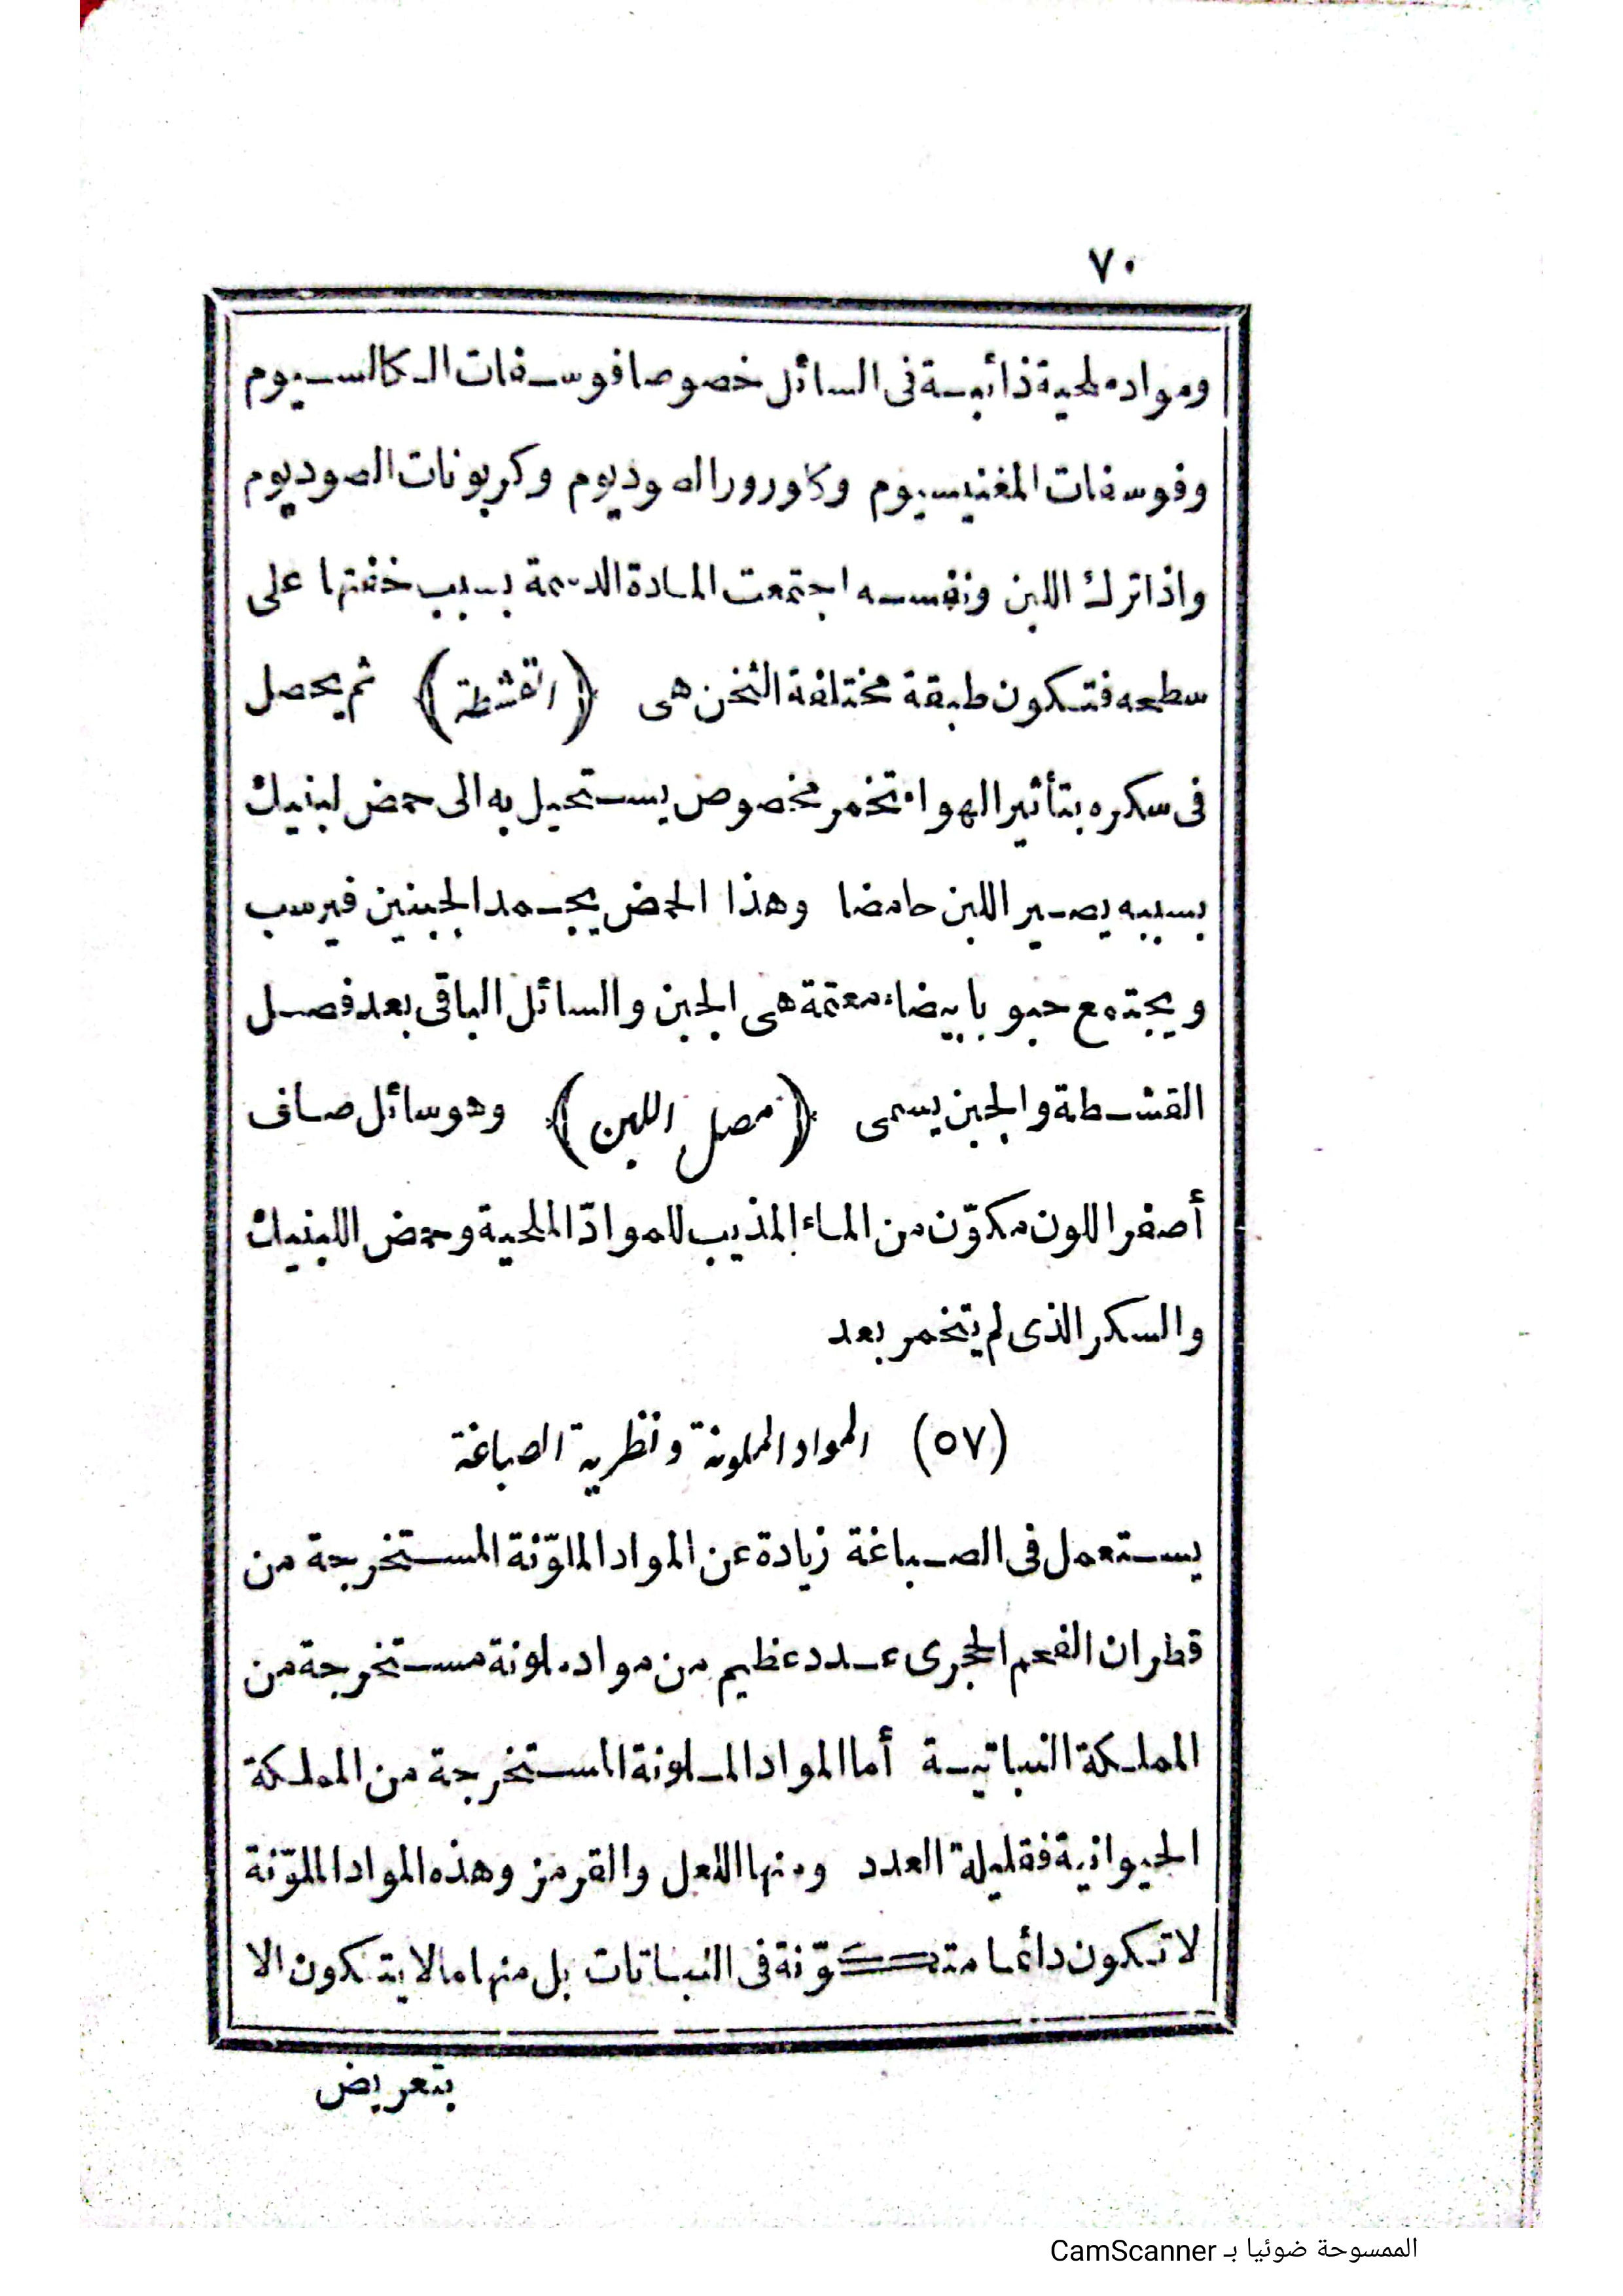 ٧٠
ومواد ملحية ذائبة فى السائل خصوصا فوسفات الكالسيوم
وفوسفات المغنيسيوم وكلورور الصوديوم وكربونات الصوديوم
واذا ترك اللبن ونفسه اجتمعت المادة الدسمة بسبب خفتها على
سطحه فتكون طبقة مختلفة الثخن هى (القشطة) ثم يحصل
فى سكره بتأثير الهواء تخمر مخصوص يستحيل به الى حمض لبنيك
بسببه يصير اللبن حامضا وهذا الحمض يجمد الجبنين فيرسب
ويجتمع حبوبا بيضاء معتمة هى الجبن والسائل الباقى بعد فصل
القشطة والجبن يسمى (مصل اللبن) وهو سائل صاف
أصفر اللون مكوّن من الماء المذيب للموادّ الملحية وحمض اللبنيك
والسكر الذى لم يتخمر بعد
(٥٧) المواد الملونة ونظرية الصباغة
يستعمل فى الصباغة زيادة عن المواد الملوّنة المستخرجة من
قطران الفحم الحجرى عدد عظيم من مواد ملونة مستخرجة من
المملكة النباتية أما المواد الملونة المستخرجة من المملكة
الحيوانية فقليلة العدد ومنها اللعل والقرمز وهذه المواد الملوّنة
لا تكون دائما متكوّنة فى النباتات بل منها ما لا يتكون الا
بتعريض
الممسوحة ضوئيا بـ CamScanner